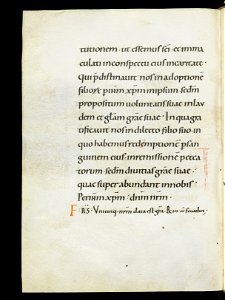 tutionem · ut essemus sci · et imma
culati in conspectu eius in caritate ·
Qui p̄destinavit nos in adoptionē
filiorū · p ihm xpm in ipsum · sedm
propositum voluntatis suae · in lau
dem et glam grae suae · In qua gra
tificavit nos in dilecto filio suo · in
quo habemus redemptionē p san
guinem eius · in remissionem pecca
torum · sedm divitias grae suae ·
quae super abundavit in nobis ·
Per ihm xpm · dnm nrm ·